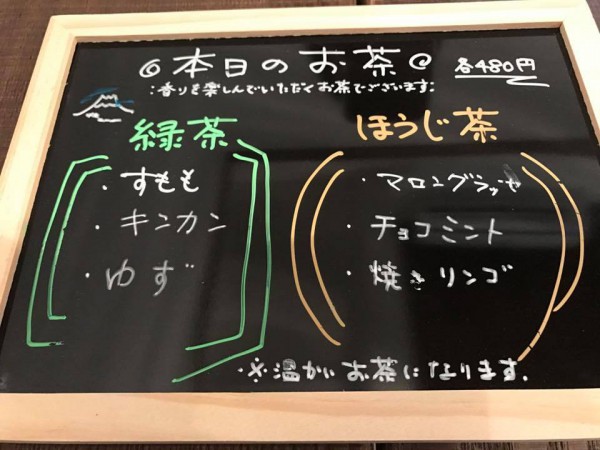 本日のお茶 各480円
:香りを楽しんでいただくお茶でございます:
緑茶 ほうじ茶
・すもも
・キンカン
・ゆず
・マロングラッセ
・チョコミント
・焼きリンゴ
・※温かいお茶になります.